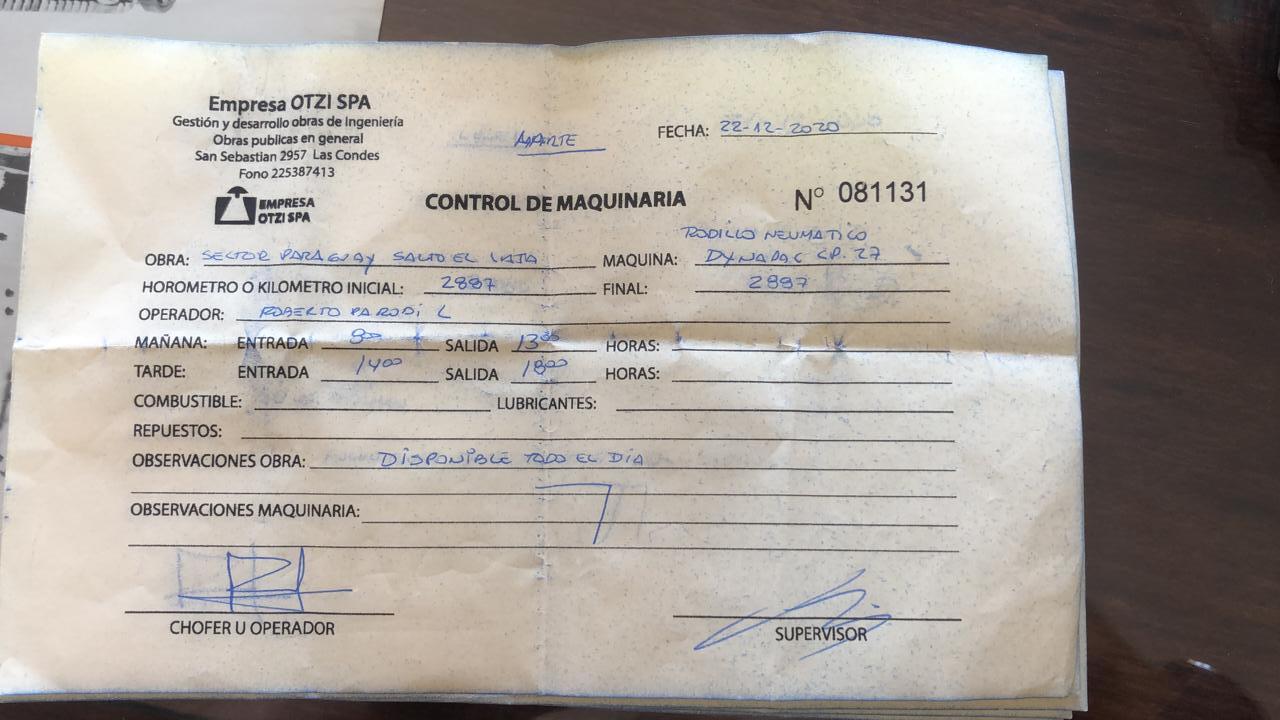 Empresa OTZI SPA
Gestión y desarrollo obras de Ingeniería
Obras publicas en general
San Sebastian 2957 Las Condes
Fono 225387413
EMPRESA
OTZI SPA
FECHA: 22-12-2020
CONTROL DE MAQUINARIA
N° 081131
RODILLO NEUMATICO
OBRA: SECTOR PARAGUAY SALTO EL MAQUINA: DYNAPAC CP. 27
HOROMETRO O KILOMETRO INICIAL: 2887 FINAL: 2887
OPERADOR: ROBERTO PARODI L
MAÑANA: ENTRADA 8°° SALIDA 13°° HORAS:
TARDE: ENTRADA 14°° SALIDA 18°° HORAS:
COMBUSTIBLE: LUBRICANTES:
REPUESTOS:
OBSERVACIONES OBRA: DISPONIBLE TODO EL DÍA
OBSERVACIONES MAQUINARIA:
CHOFER U OPERADOR
SUPERVISOR